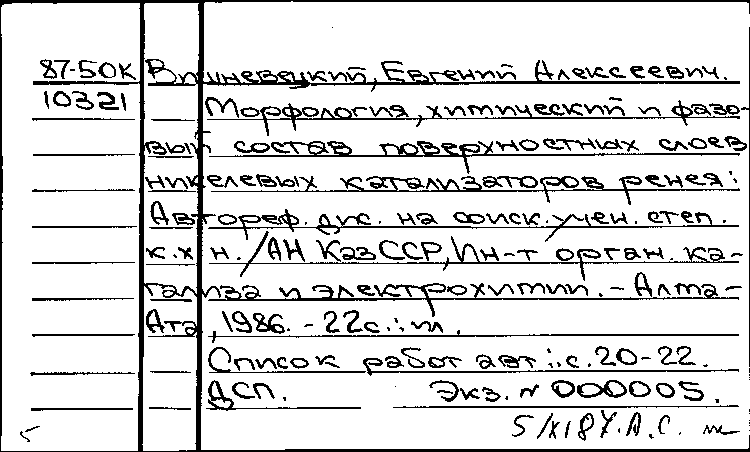 87-50К Вишневецкий, Евгений Алексеевич.
10321 Морфология, химический и фазо-
вый состав поверхностных слоев
никелевых катализаторов ренея:
Автореф. дис. на соиск. учен. степ.
к.х н. /АН КазССР, Ин-т орган. ка-
тализа и электрохимии. - Алма-
Ата, 1986. - 22с.: ил.
Список работ авт.: с. 20-22.
ДСП. Экз. № 000005.
5 5/XI 87. А.С.